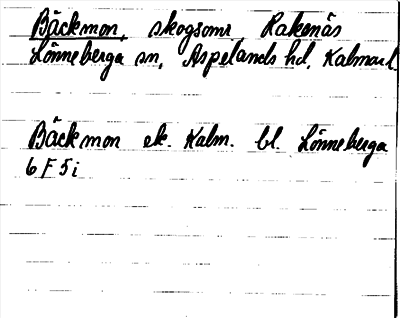 Bäckmon, skogsomr, Rakenäs
Lönneberga sn, Aspelands hd. Kalmar l.
Bäckmon ek. Kalm. bl. Lönneberga
6 F 5 i